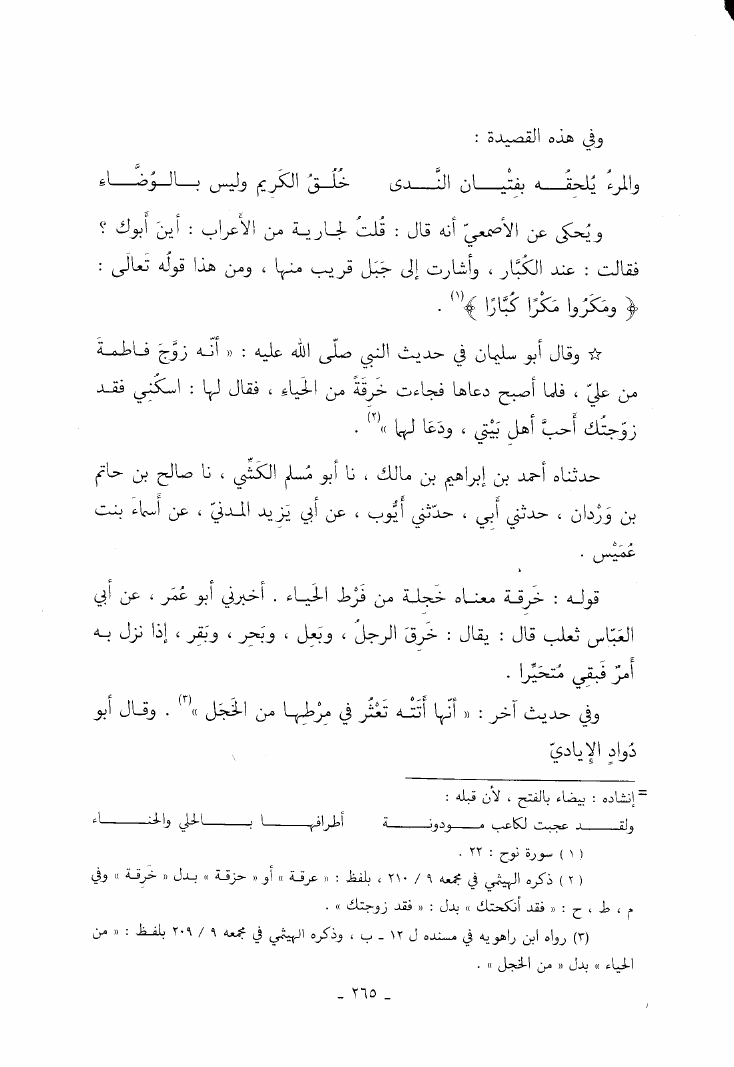 وفي هذه القصيدة :
والمرءُ يُلحِقُه بفِتْيان النَّدى خُلُقُ الكَريمِ وليس بالوُضَّاء
ويُحكى عن الأصمعيّ أنه قال : قُلتُ لجارية من الأعراب : أينَ أبوك ؟
فقالت : عند الكُبَّار ، وأشارت إلى جَبَل قريب منها ، ومن هذا قولُه تَعالى :
﴿ ومَكَرُوا مَكْرًا كُبَّارًا ﴾(١) .
☆ وقال أبو سليمان في حديث النبي صلّى الله عليه : « أنّه زوَّجَ فاطمةَ
من عليّ ، فلما أصبح دعاها فجاءت خَرِقَةً من الحَياء ، فقال لها : اسكُني فقد
زوّجتُك أحبَّ أهلِ بَيْتي ، ودَعَا لها »(٢) .
حدثناه أحمد بن إبراهيم بن مالك ، نا أبو مُسلم الكَشِّي ، نا صالح بن حاتم
بن وَرْدان ، حدثني أَبي ، حدّثني أَيُّوب ، عن أبي يَزيد المدنيّ ، عن أسماءَ بنت
عُمَيْس .
قوله : خَرِقة معناه خَجِلة من فَرْط الحَياء . أخبرني أبو عُمَر ، عن أبي
العَبّاس ثعلب قال : يقال : خَرِقَ الرجلُ ، وبَعِل ، وبَحِر ، وبَقِر ، إذا نزل به
أمرٌ فبَقِي مُتحَيِّرا .
وفي حديث آخر : « أنّها أَتَتْه تَعْثُر في مِرْطِها من الخَجَل »(٣) . وقال أبو
دُوادٍ الإِياديّ
= إنشاده : بيضاء بالفتح ، لأن قبله :
ولقد عجبت لكاعب مودونة أطرافها بالحلي والحناء
(١) سورة نوح : ٢٢ .
(٢) ذكره الهيثمي في مجمعه ٩ / ٢١٠ ، بلفظ : « عرقة » أو « حزقة » بدل « خَرِقة » وفي
م ، ط ، ح : « فقد أنكحتك » بدل : « فقد زوجتك » .
(٣) رواه ابن راهويه في مسنده ل ١٢ ـ ب ، وذكره الهيثمي في مجمعه ٩ / ٢٠٩ بلفظ : « من
الحياء » بدل « من الخجل » .
ـ ٢٦٥ ـ